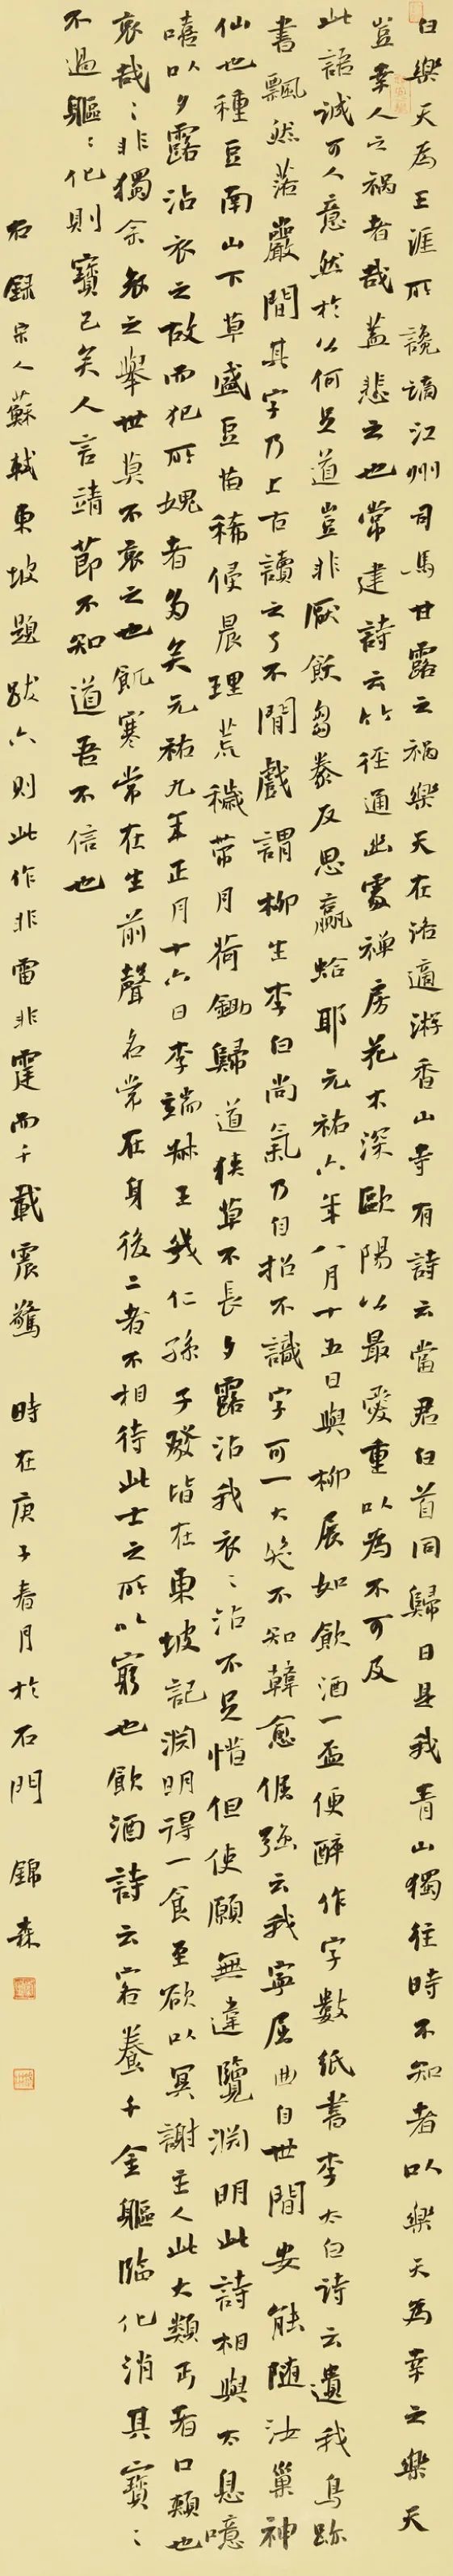 白樂天為王涯所讒謫江州司馬甘露之禍樂天在洛適游香山寺有詩云當君白首同歸日是我青山獨往時不知者以樂天為幸之樂天
豈幸人之禍者哉蓋悲之也常建詩云竹徑通幽處禪房花木深歐陽公最愛重以為不可及
此語誠可人意然於公何足道豈非厭飫芻豢反思蠃蛤耶元祐六年八月十五日與柳展如飲酒一盃便醉作字數紙書李太白詩云遺我鳥跡
書飄然落巖間其字乃上古讀之了不閒戲謂柳生李白尚氣乃自招不識字可一大笑不知韓愈倔強云我寧屈曲自世間安能隨汝巢神
仙也種豆南山下草盛豆苗稀侵晨理荒穢帶月荷鋤歸道狹草木長夕露沾我衣〻沾不足惜但使願無違覽淵明此詩相與太息噫
嘻以夕露沾衣之故而犯所媿者多矣元祐九年正月十六日李端叔王幾仁孫子發皆在東坡記淵明得一食至欲以冥謝主人此大類丐者口頰也
哀哉〻非獨余哀之舉世莫不哀之也飢寒常在生前聲名常在身後二者不相待此士之所以窮也飲酒詩云客養千金軀臨化消其寶〻
不過軀〻化則寶已矣人言靖節不知道吾不信也
右錄宋人蘇軾東坡題跋六則此作非雷非霆而千載震驚 時在庚子春月於石門 錦森